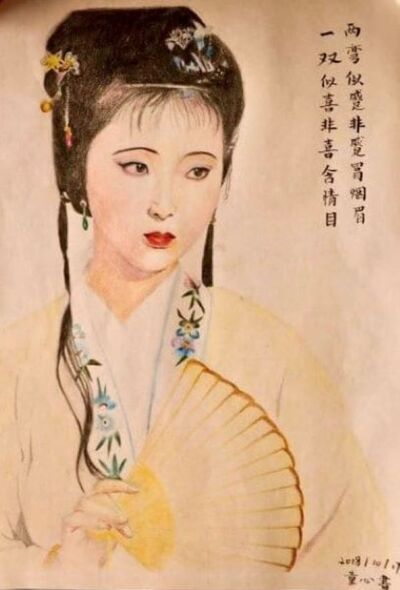 两弯似蹙非蹙冒烟眉
一双似喜非喜含情目
2018/10/17
童心書